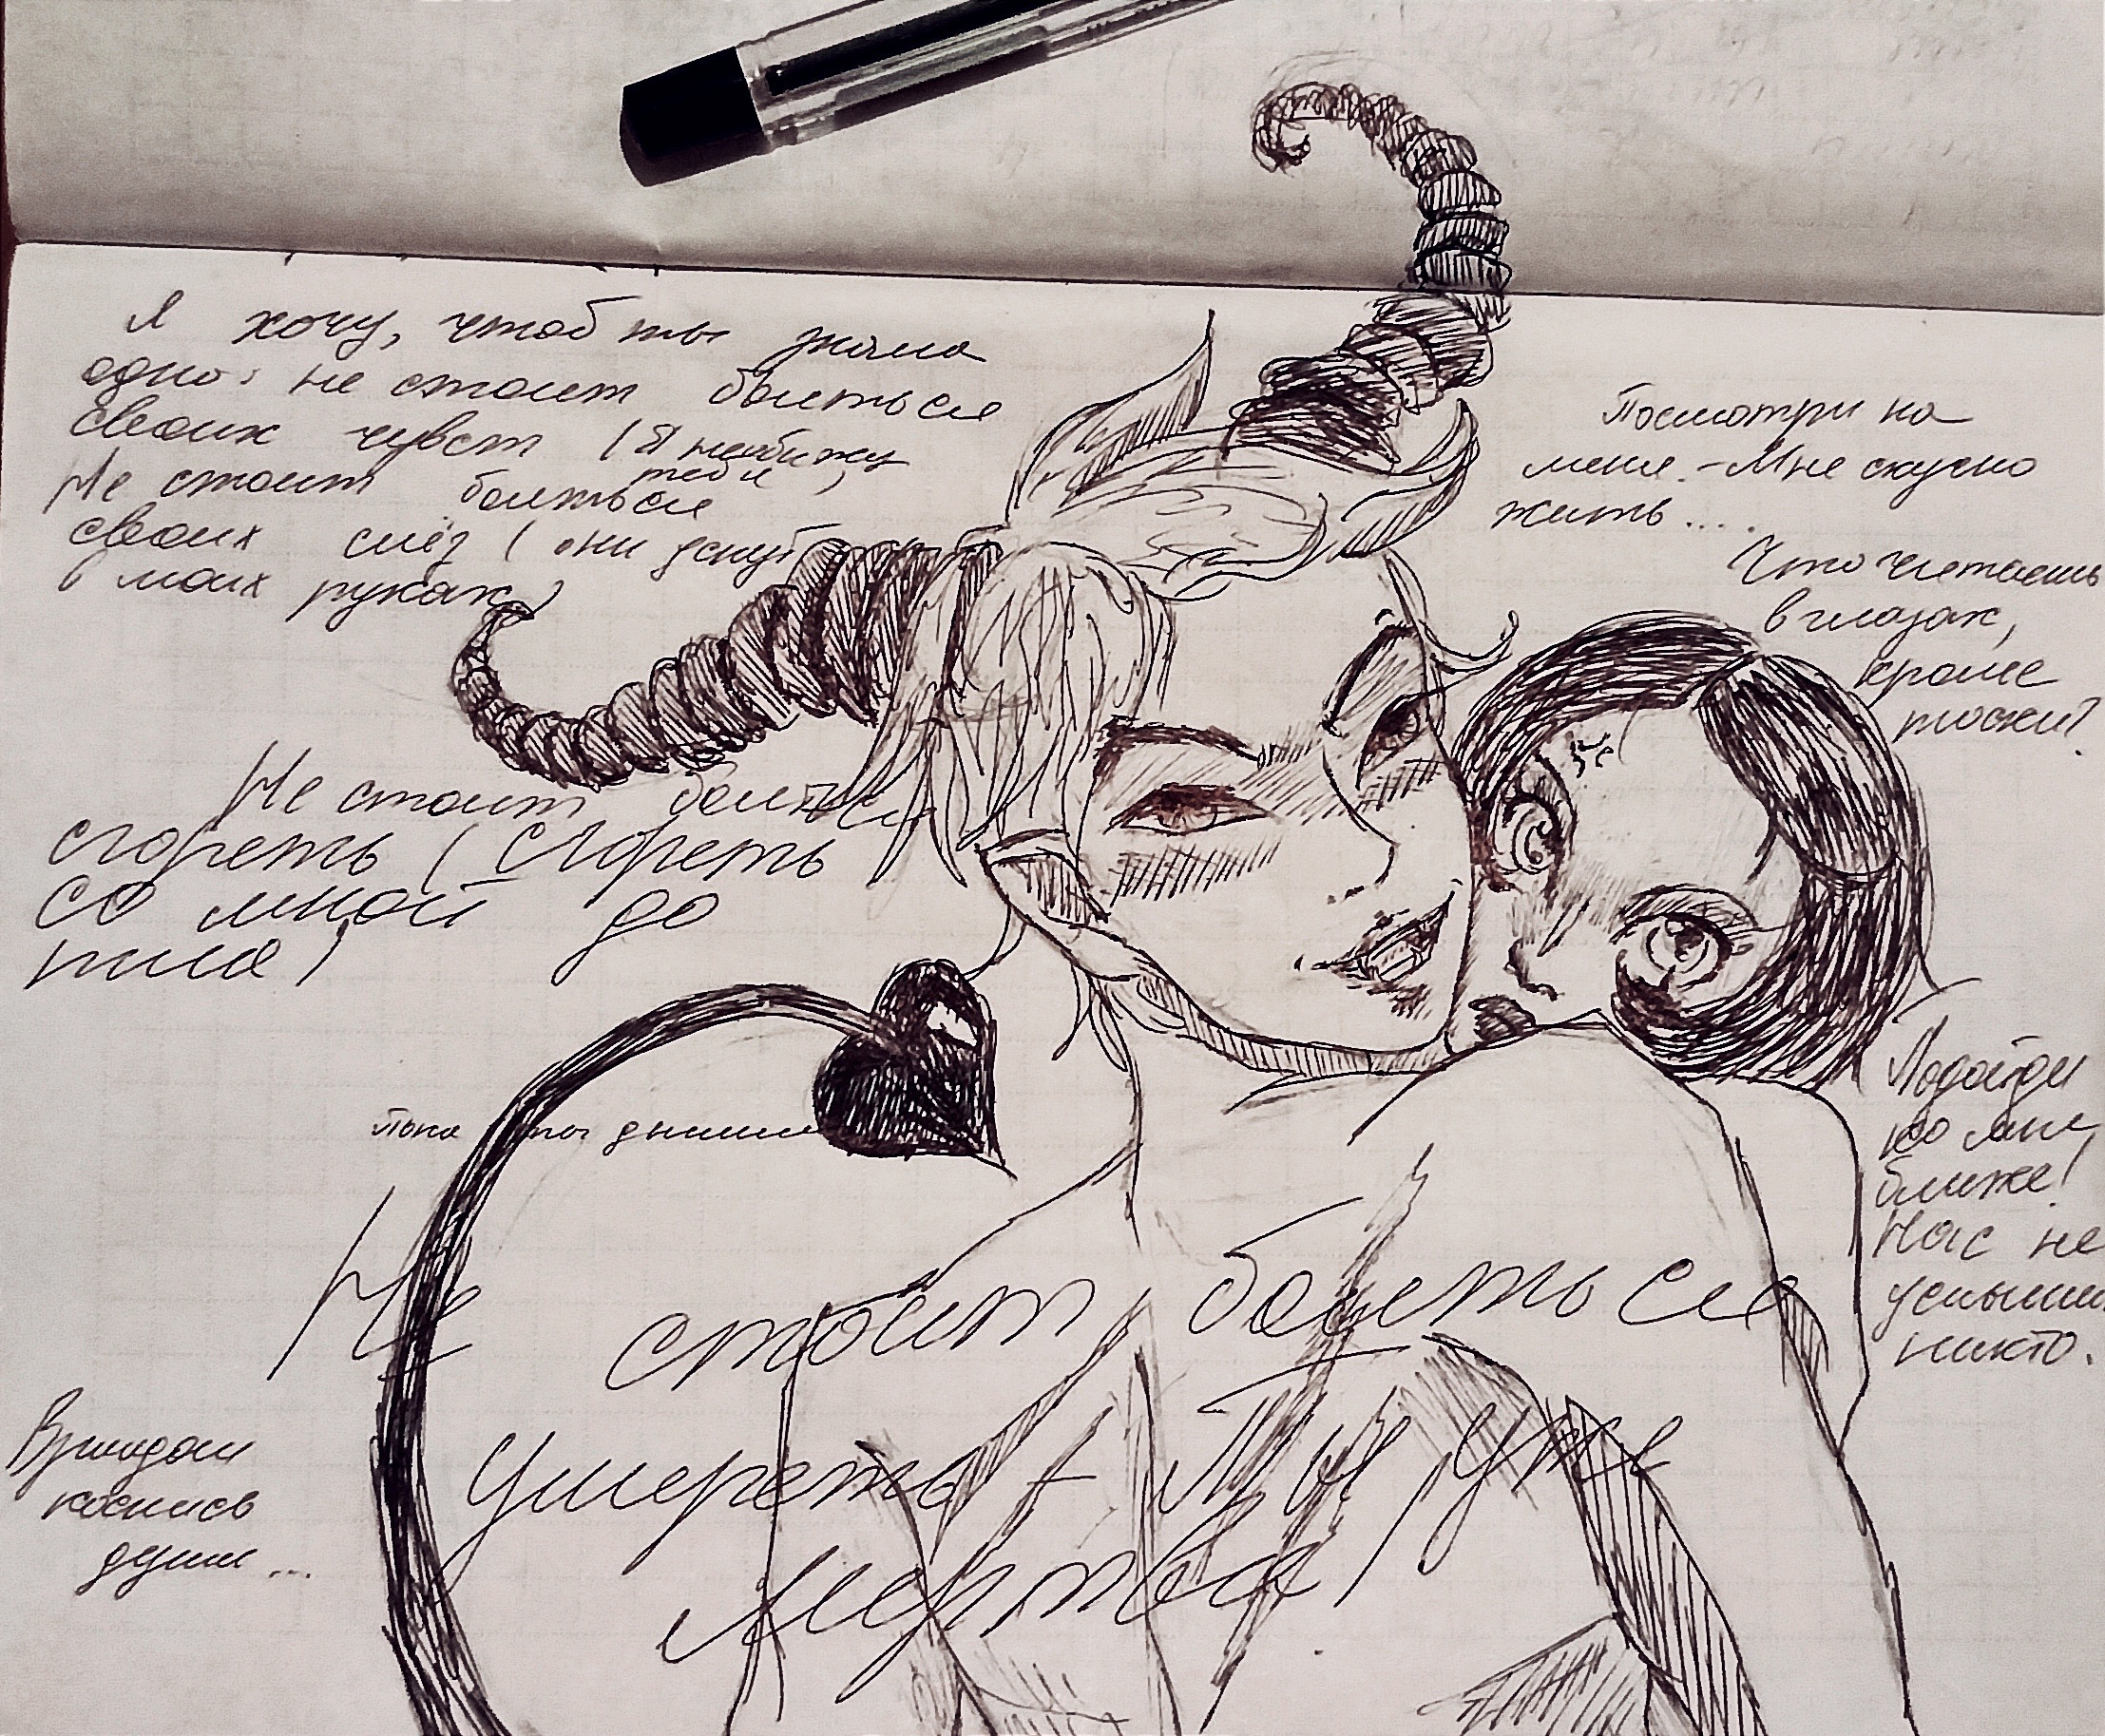 Я хочу, чтоб ты знала
одно: не стоит бояться
своих чувст (Я необижу
тебя)
Не стоит бояться
своих слёз (они уснут
в моих руках)
Не стоит бояться
сгореть (Сгореть
со мной до
тла)
Пока ты дышишь
Не стоит бояться
умереть + Ты уже
мертва)
Взглядом
коснись
души...
Посмотри на
меня. - Мне скучно
жить....
Что читаешь
в глазах,
кроме
тоски?
Подойди
ко мне
ближе!
Нас не
услышит
никто.